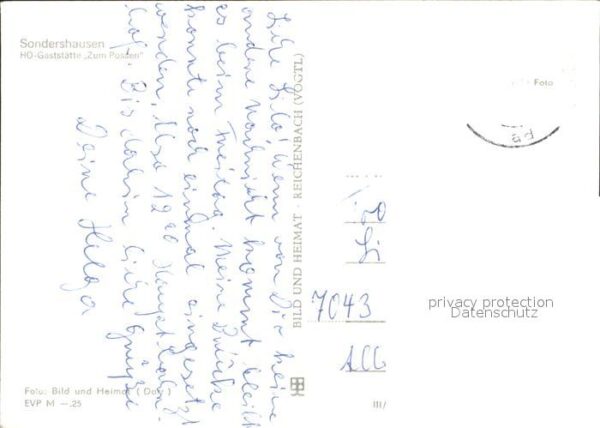 Sondershausen
HO-Gaststätte „Zum Possen"
Liebe Lilo! Wenn von Dir keine
andere Nachricht kommt bleibt
es beim Freitag. Meine Brücke
konnte noch einmal eingesetzt
werden. Also 12
Bis dahin liebe Grüße
Deine Helga
BILD UND HEIMAT · REICHENBACH (VOGTL)
Foto
7043
privacy protection
Datenschutz
Foto: Bild und Heimat
EVP M —.25
III/